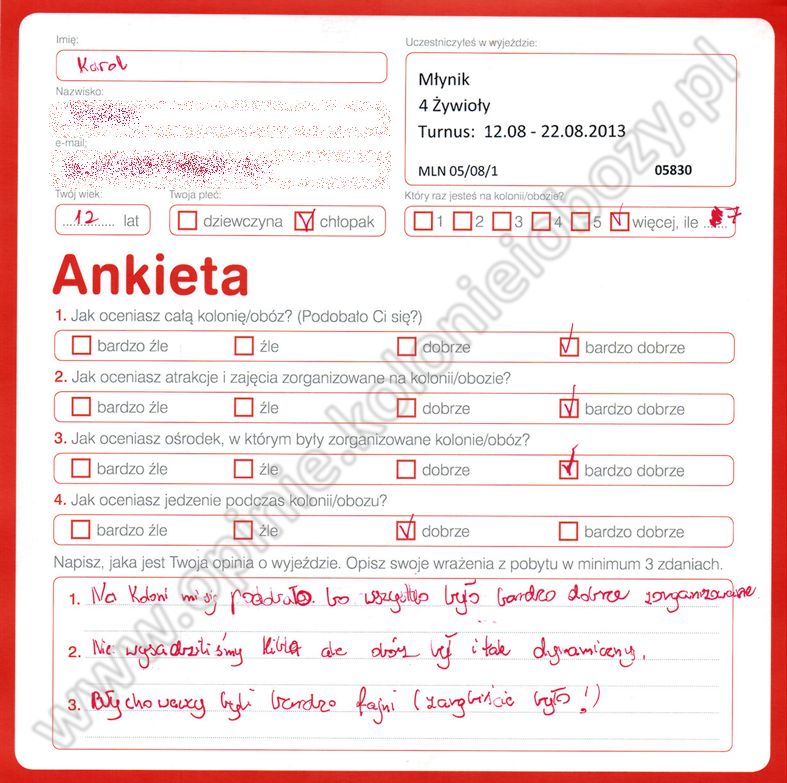 Imię:
Karol
Uczestniczyłeś w wyjeździe:
Młynik
4 Żywioły
Turnus: 12.08 - 22.08.2013
MLN 05/08/1 05830
Nazwisko:
e-mail:
Twój wiek:
12 lat
Twoja płeć:
dziewczyna chłopak
Który raz jesteś na kolonii/obozie?
1 2 3 4 5 więcej, ile 7
Ankieta
1. Jak oceniasz całą kolonię/obóz? (Podobało Ci się?)
bardzo źle źle dobrze bardzo dobrze
2. Jak oceniasz atrakcje i zajęcia zorganizowane na kolonii/obozie?
bardzo źle źle dobrze bardzo dobrze
3. Jak oceniasz ośrodek, w którym były zorganizowane kolonie/obóz?
bardzo źle źle dobrze bardzo dobrze
4. Jak oceniasz jedzenie podczas kolonii/obozu?
bardzo źle źle dobrze bardzo dobrze
Napisz, jaka jest Twoja opinia o wyjeździe. Opisz swoje wrażenia z pobytu w minimum 3 zdaniach.
1. Na Koloni mi się podobało bo wszystko było bardzo dobrze zorganizowane
2. Nie wysadziliśmy kibla ale obóz był i tak dynamiczny.
3. Wychowawcy byli bardzo fajni (zarąbiście było!)
www.opinie.kolonieiobozy.pl